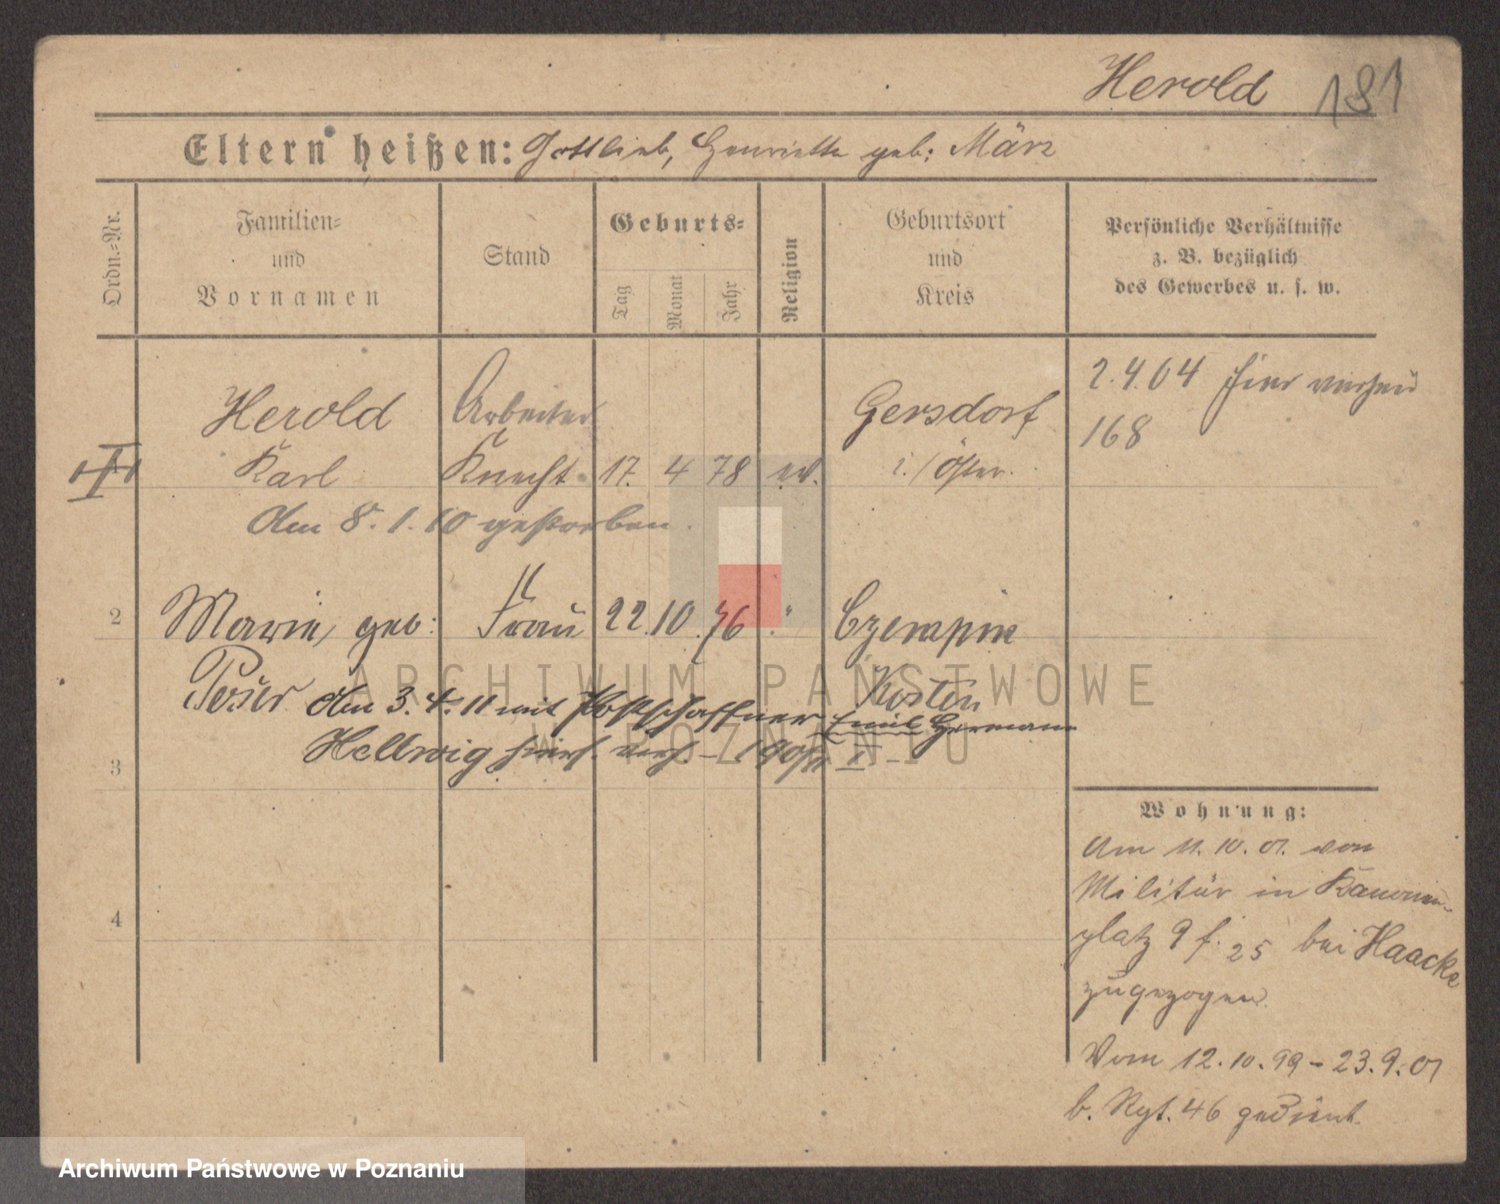 Herold 181
Eltern heißen: Gottlieb, Henriette geb: März
Ordn.-Nr.
Familien-
und
Vornamen
Stand
Geburts-
Tag
Monat
Jahr
Religion
Geburtsort
und
Kreis
Persönliche Verhältnisse
z. B. bezüglich
des Gewerbes u. s. w.
Herold Arbeiter Gersdorf 2.4.04 hier
Karl Knecht 17. 4 78 ev. i./Öster. 168
Am 8.1.10 gestorben.
2 Marie, geb: Frau 22. 10. 76 " Czempin
Kosten
am 3.4.11 mit Postschaffner Emil Hermann
Hellwig
3
4
Wohnung:
Am 11.10.01 von
Militär in Kanonen-
platz 9 f. 25 bei Haacke
zugezogen.
Vom 12.10.99 - 23.9.01
b. Rgt. 46 gedient.
ARCHIWUM PAŃSTWOWE
W POZNANIU
Archiwum Państwowe w Poznaniu